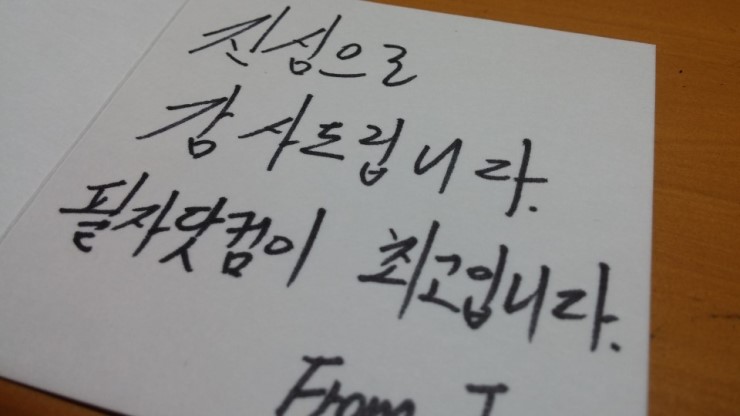 진심으로
감사드립니다.
필자닷컴이 최고입니다.
From J